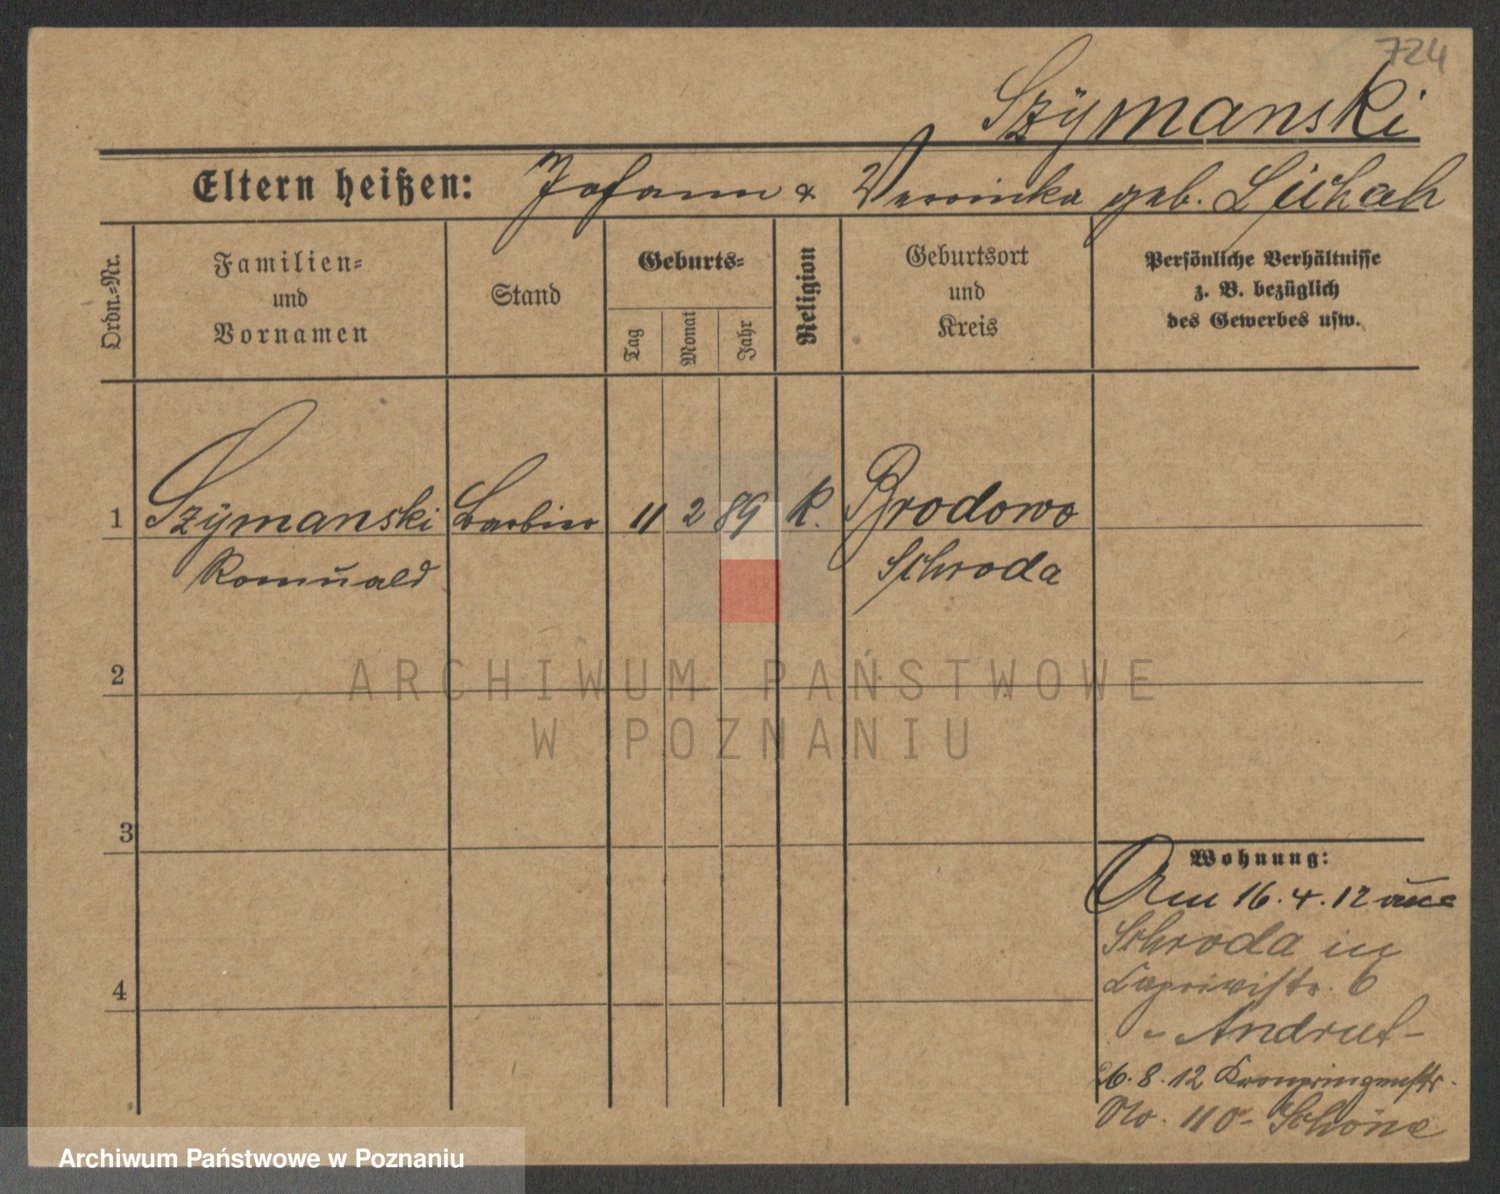 724
Szÿmanski
Eltern heißen: Johann & Veronika geb. Lischah
Ordn.=Nr.
Familien=
und
Vornamen
Stand
Geburts=
Tag
Monat
Jahr
Religion
Geburtsort
und
Kreis
Persönliche Verhältnisse
z. B. bezüglich
des Gewerbes usw.
1 Szÿmanski Barbier 11 2 89 K. Brodowo
Romuald Schroda
2
3
4
Wohnung:
Am 16.4.12 aus
Schroda in
Caprivistr. 6
Andrut-
26.8.12 Kronprinzenstr.
No. 110- Schöne
ARCHIWUM PAŃSTWOWE
W POZNANIU
Archiwum Państwowe w Poznaniu